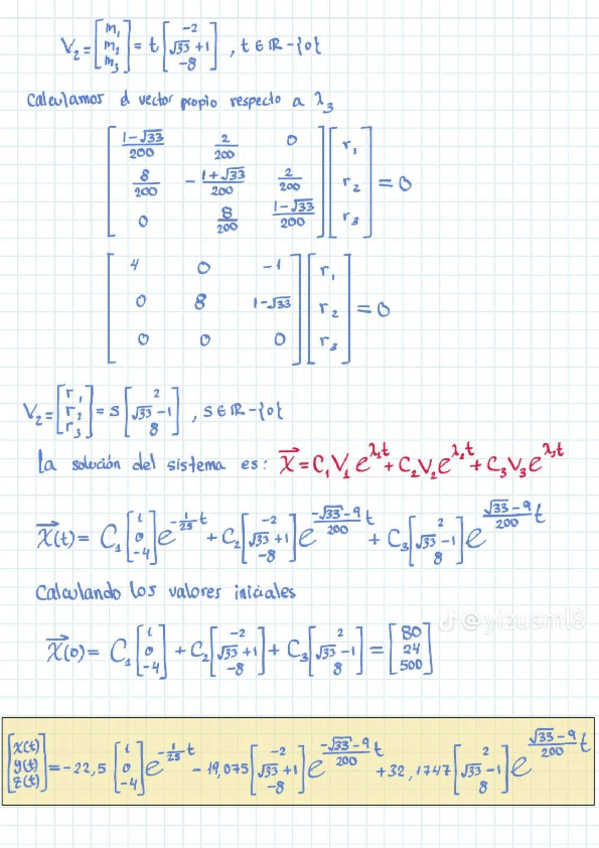 V₂ = [m₁ m₂ m₃] = t [-2 √33+1 -8] , t ∈ ℝ - {0{
Calculamos el vector propio respecto a λ₃
[1-√33/200 2/200 0] [r₁]
[8/200 -1+√33/200 2/200] [r₂] = 0
[0 8/200 1-√33/200] [r₃]
[4 0 -1] [r₁]
[0 8 1-√33] [r₂] = 0
[0 0 0] [r₃]
V₂ = [r₁ r₂ r₃] = s [2 √33-1 8] , s ∈ ℝ - {0{
La solución del sistema es: X⃗ = C₁V₁e^λ₁t + C₂V₂e^λ₂t + C₃V₃e^λ₃t
X⃗(t) = C₁ [1 0 -4] e^(-1/25 t) + C₂ [-2 √33+1 -8] e^(-√33-9/200 t) + C₃ [2 √33-1 8] e^(√33-9/200 t)
Calculando los valores iniciales
@yizusml8
X⃗(0) = C₁ [1 0 -4] + C₂ [-2 √33+1 -8] + C₃ [2 √33-1 8] = [80 24 500]
[x(t) y(t) z(t)] = -22,5 [1 0 -4] e^(-1/25 t) - 19,075 [-2 √33+1 -8] e^(-√33-9/200 t) + 32,1747 [2 √33-1 8] e^(√33-9/200 t)